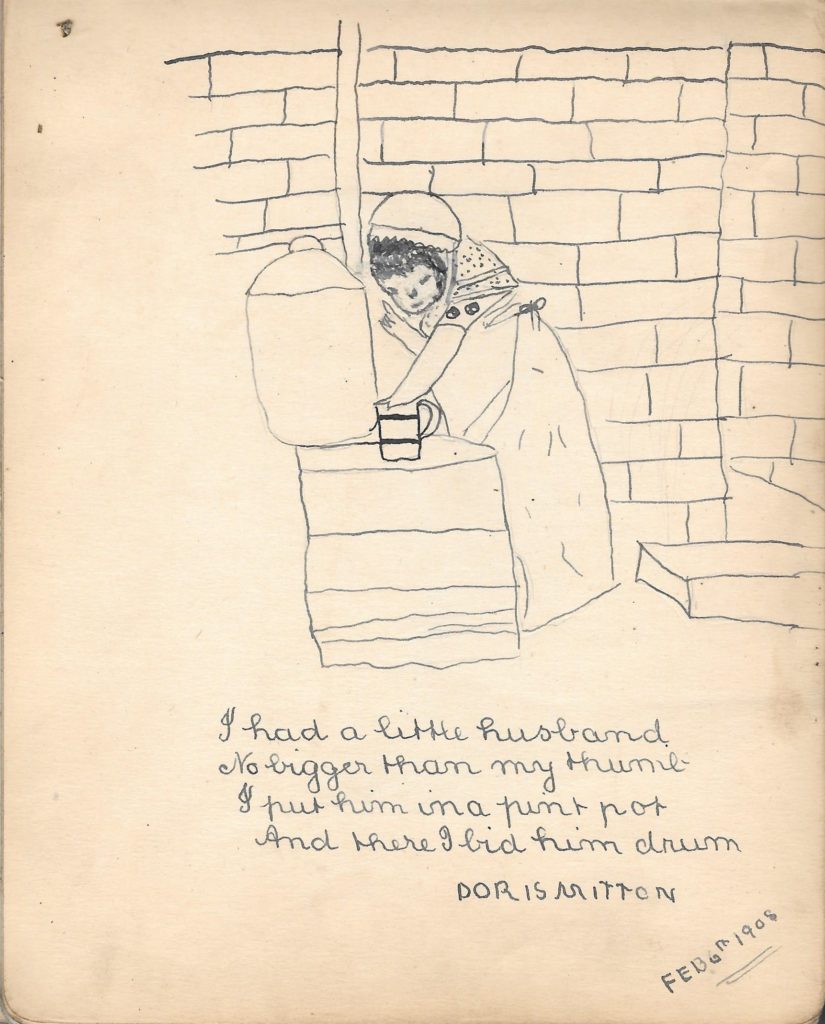 I had a little husband
No bigger than my thumb
I put him in a pint pot
And there I bid him drum
DORIS MITTON
FEB 6TH 1908